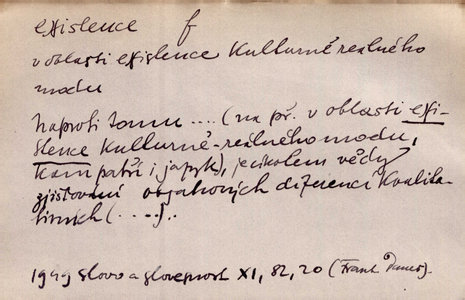 existence f
v oblasti existence Kulturně reálného
modu
Naproti tomu .... (na př. v oblasti exi-
stence Kulturně-reálného modu,
kam patří i jazyk), je úkolem vědy
zjišťování obsahových diferencí Kvalita-
tivních (.....)..
1949 Slovo a slovesnost XI, 82, 20 (Frant Daneš).